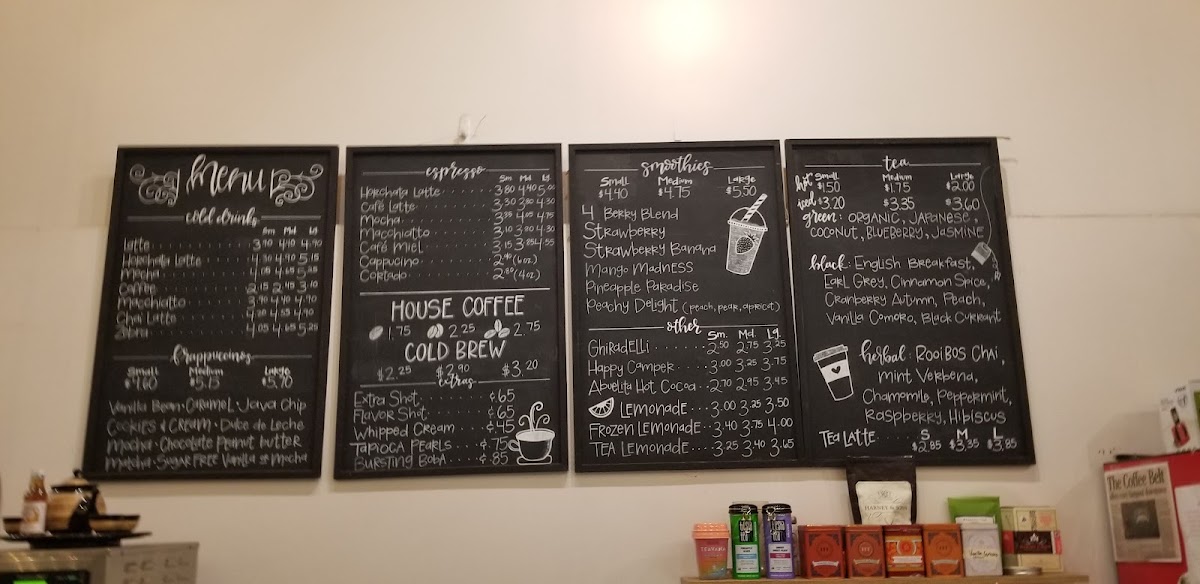 Menu
cold drinks
Sm Md Lg
Latte 3.90 4.40 4.90
Horchata Latte 4.30 4.90 5.15
Mocha 4.05 4.65 5.25
Coffee 2.15 2.45 3.10
Macchiatto 3.90 4.40 4.90
Chai Latte 4.30 4.55 4.90
4.05 4.65 5.25
frappuccinos
Small Medium Large
$4.60 $5.15 $5.90
Vanilla Bean · Caramel · Java Chip
Cookies & Cream · Dulce de Leche
Mocha · Chocolate Peanut Butter
Matcha · Sugar Free Vanilla or Mocha
espresso
Sm Md Lg
Horchata Latte 3.80 4.40 5.00
Café Latte 3.30 3.80 4.30
Mocha 3.35 4.05 4.75
Macchiatto 3.10 3.80 4.30
Café Miel 3.15 3.85 4.55
Cappucino 2.90 (6 oz.)
Cortado 2.80 (4 oz.)
HOUSE COFFEE
1.75 2.25 2.75
COLD BREW
$2.25 $2.90 $3.20
extras
Extra Shot ¢65
Flavor Shot ¢65
Whipped Cream ¢45
Tapioca Pearls ¢75
Bursting Boba ¢85
smoothies
Small Medium Large
$4.40 $4.75 $5.50
4 Berry Blend
Strawberry
Strawberry Banana
Mango Madness
Pineapple Paradise
Peachy Delight (peach, pear, apricot)
other
Sm. Md. Lg.
Ghiradelli 2.50 2.75 3.25
Happy Camper 3.00 3.25 3.75
Abuelita Hot Cocoa 2.70 2.95 3.45
Lemonade 3.00 3.25 3.50
Frozen Lemonade 3.40 3.75 4.00
Tea Lemonade 3.25 3.40 3.65
tea
Small Medium Large
hot $1.50 $1.75 $2.00
iced $3.20 $3.35 $3.60
green: Organic, Japanese,
Coconut, Blueberry, Jasmine
black: English Breakfast,
Earl Grey, Cinnamon Spice,
Cranberry Autumn, Peach,
Vanilla Comoro, Black Currant
herbal: Rooibos Chai,
Mint Verbena,
Chamomile, Peppermint,
Raspberry, Hibiscus
S M L
Tea Latte $2.85 $3.35 $3.85
The Coffee Belt
HARNEY & SONS